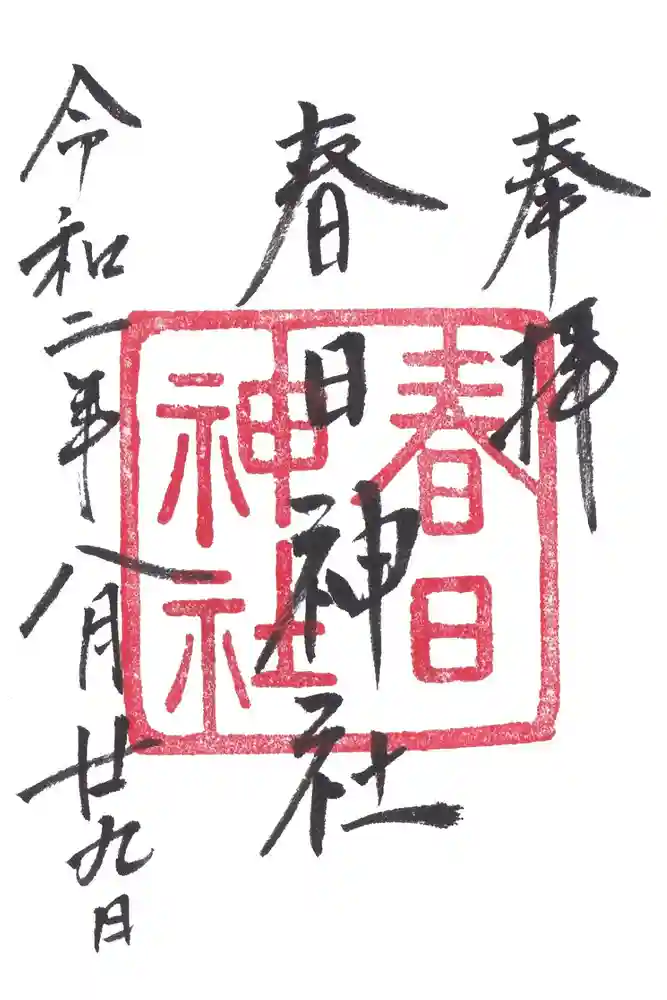 奉拝
春日神社
春日
神社
令和二年八月廿九日